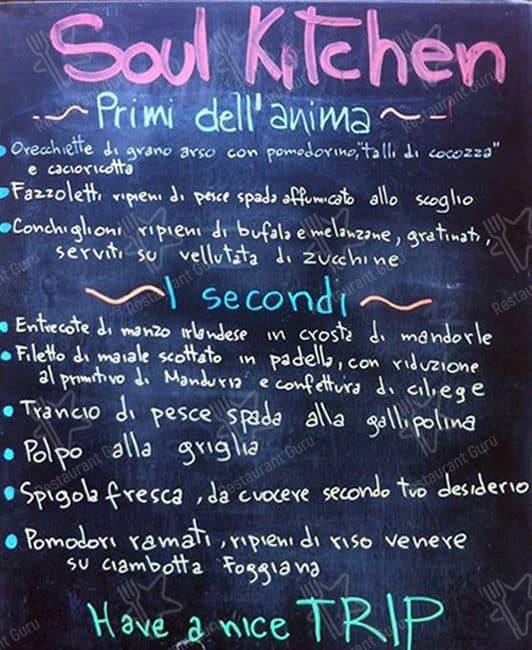 Soul Kitchen
Primi dell'anima
Orecchiette di grano arso con pomodorino, "talli di cocozza"
e cacioricotta
Fazzoletti ripieni di pesce spada affumicato allo scoglio
Conchiglioni ripieni di bufala e melanzane, gratinati,
serviti su vellutata di zucchine
I secondi
Entrecote di manzo irlandese in crosta di mandorle
Filetto di maiale scottato in padella, con riduzione
al primitivo di Manduria e confettura di ciliege
Trancio di pesce spada alla gallipolina
Polpo alla griglia
Spigola fresca, da cuocere secondo tuo desiderio
Pomodori ramati, ripieni di riso venere
su ciambotta Foggiana
Have a nice TRIP
Restaurant Guru